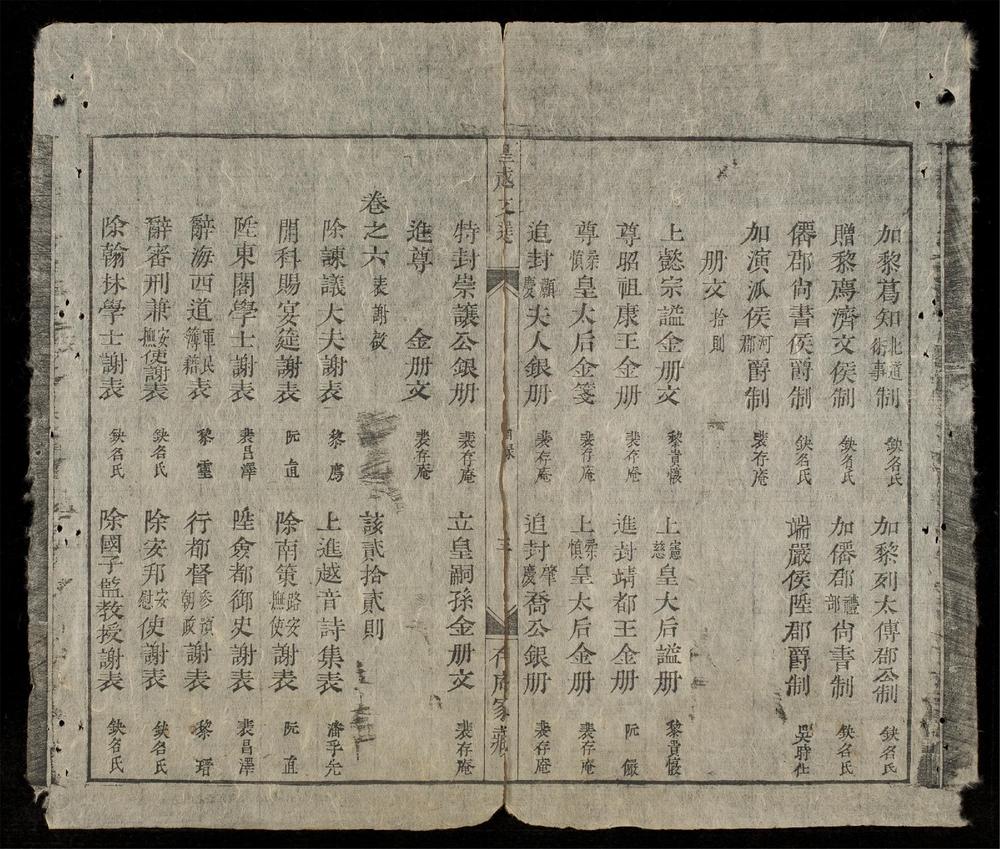 加黎葛知北道衛事制 鈌名氏 加黎列太傅郡公制 鈌名氏
贈黎廌濟文侯制 鈌名氏 加僊郡禮部尙書制 鈌名氏
僊郡尙書侯爵制 鈌名氏 端嚴侯陞郡爵制 吳時仕
加演泒侯河郡爵制 裴存庵
册文 拾則
上懿宗謚金册文 黎貴惇 上憲慈皇太后謚册 黎貴惇
尊昭祖康王金册 裴存庵 進封靖都王金册 阮儼
尊崇慎皇太后金箋 裴存庵 上崇慎皇太后金册 裴存庵
追封顯慶夫人銀册 裴存庵 追封肇慶喬公銀册 裴存庵
特封崇讓公銀册 裴存庵 立皇嗣孫金册文 裴存庵
皇越文選 目錄 三 存庵家藏
進尊 金册文 裴存庵
卷之六 表謝啟 該貳拾貳則
除諫議大夫謝表 黎廌 上進越音詩集表 潘孚先
開科賜宴筵謝表 阮直 除南策路安撫使謝表 阮直
陞東閣學士謝表 裴昌澤 陞僉都御史謝表 裴昌澤
辭海西道軍民簿籍表 黎靈 行都督參預朝政謝表 黎瑨
辭審刑兼安撫使謝表 鈌名氏 除安邦安慰使謝表 鈌名氏
除翰林學士謝表 鈌名氏 除國子監教授謝表 鈌名氏